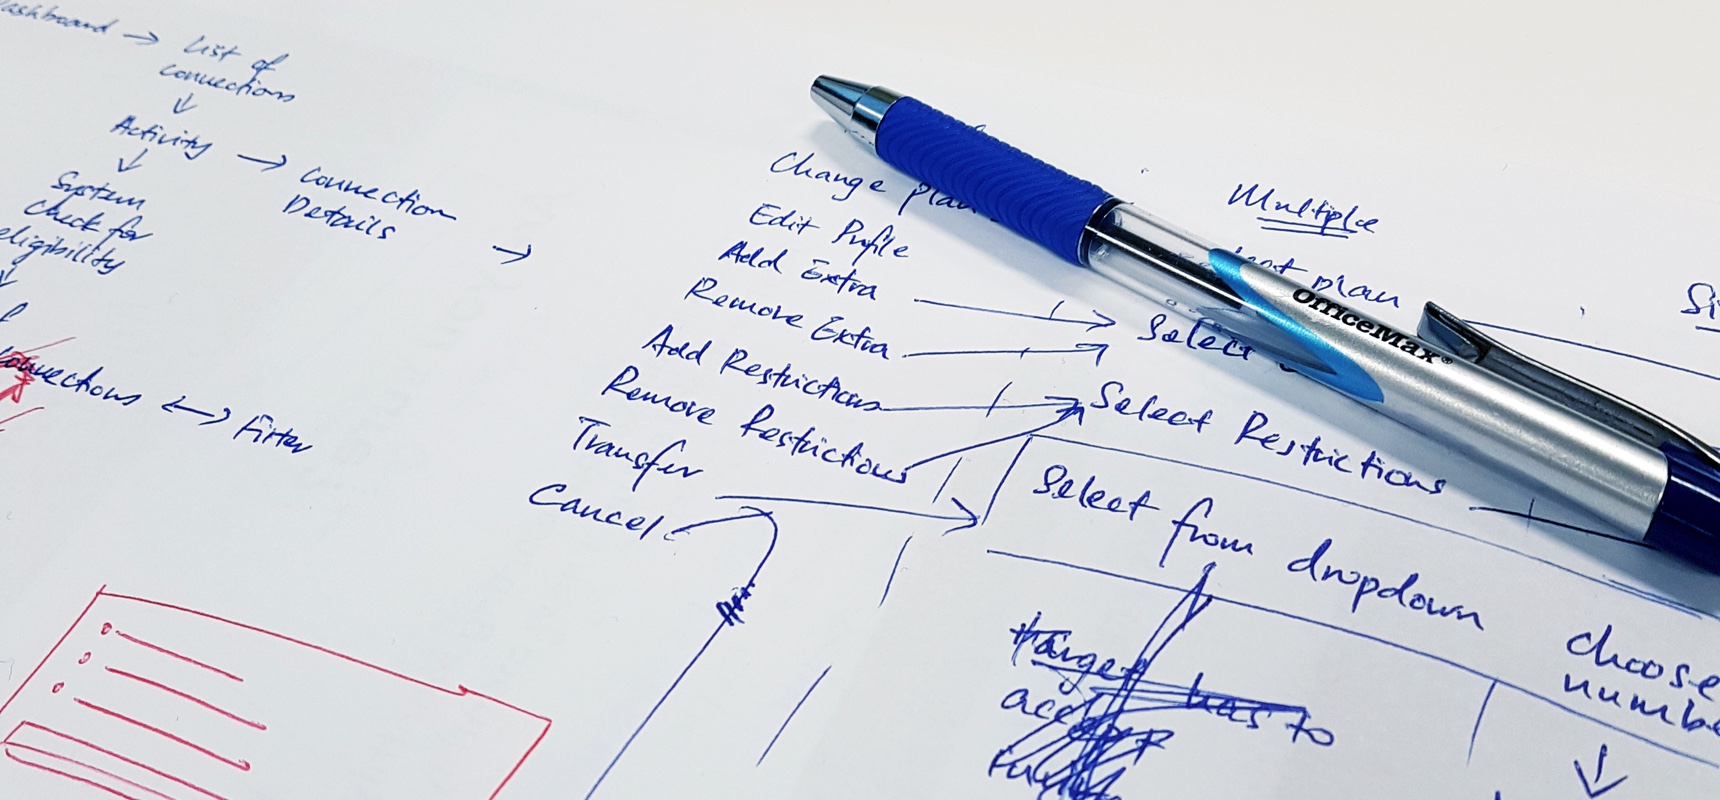 List of
connections
Activity
Connection
Details
System
Check for
eligibility
connections
Filter
Change plan
Edit Profile
Add Extra
Remove Extra
Add Restrictions
Remove Restrictions
Transfer
Cancel
Multiple
plan
Select
Select Restrictions
Select from dropdown
Target has to
accept
choose
OfficeMax®